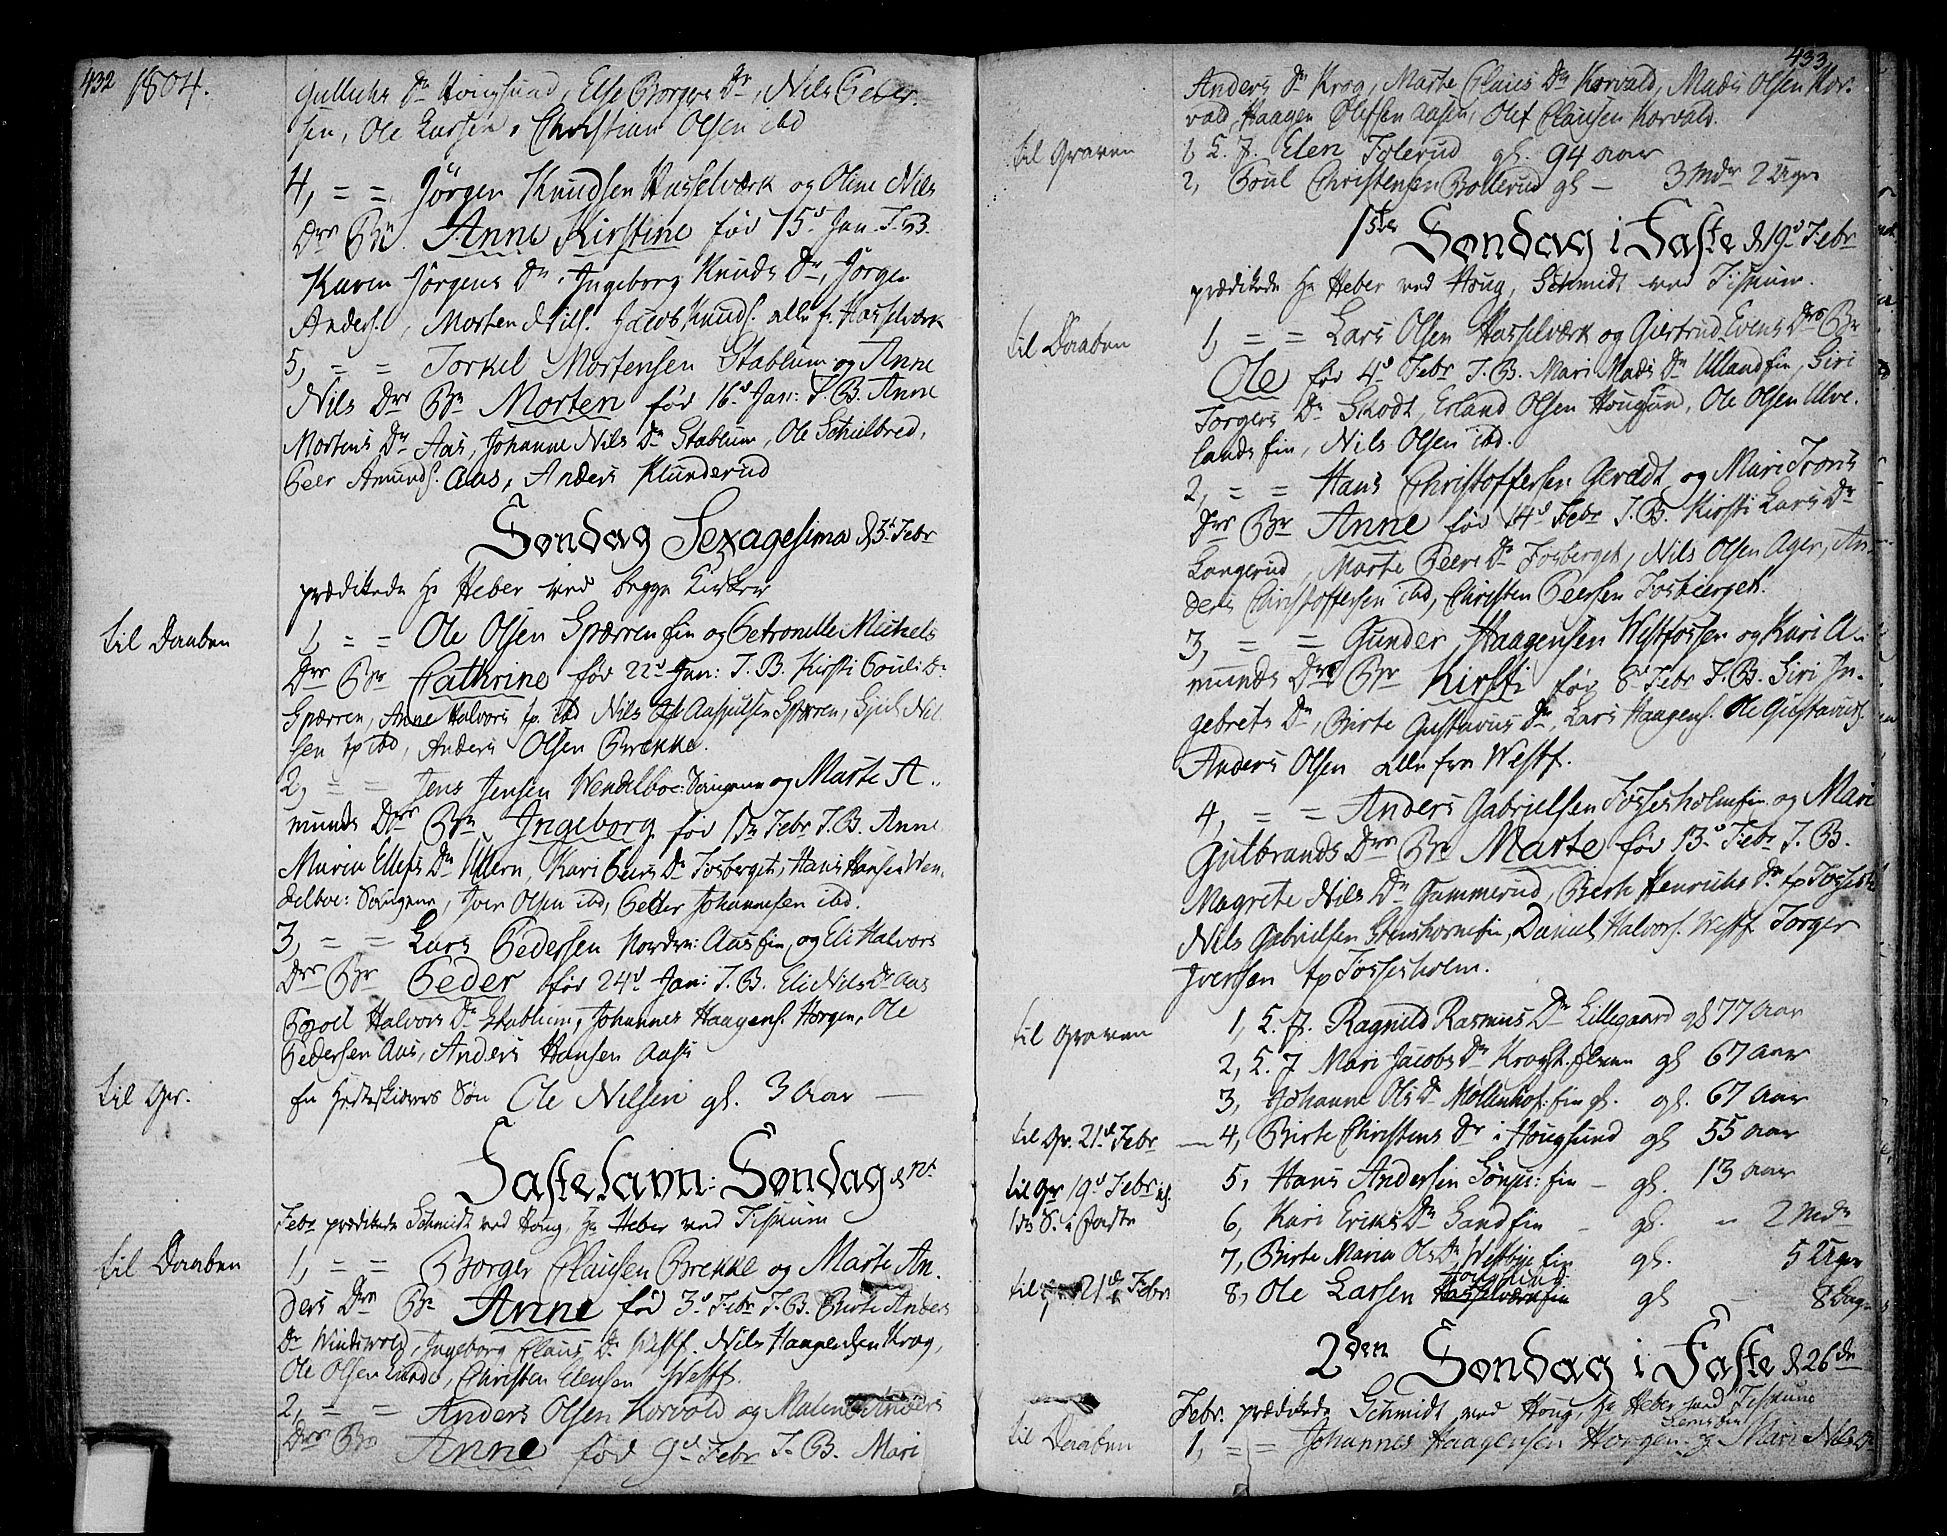 432 1804.
Gullichs Dr Hougsund, Else Borgers Dr, Nils Peder-
sen, Ole Larsen, Christian Olsen ibd
4, = = Jörgen Knudsen Hasselværk og Oline Nils
Drs Bn Anne Kirstine fød 15d Jan. T. B.
Karen Jörgens Dr, Ingeborg Knuds Dr, Jörgen
Anders., Morten Nils. Jacob Knuds. alle fr Hasselværk
5, = = Torkel Mortensen Stablum og Anne
Nils Drs Bn Morten fød 16d Jan: T. B. Anne
Mortens Dr Aas, Johanne Nils Dr Stablum, Ole Schulbred,
Peer Amunds. Aas, Anders Klunderud
Søndag Sexagesima d 5t Febr
prædikede Hr Heber ved begge Kirker
til Daaben
1, = = Ole Olsen Spærren fin og Petronelle Michels
Drs Bn Cathrine fød 22d Jan: T. B. Kirsti Pouls Dr
Spærren, Anne Halvors tp ibd Nils Aaspulsen Spærren, Nil-
sen tp ibd, Anders Olsen Brekke.
2, = = Jens Jensen Wendelboe: Saugene og Marte A-
munds Drs Bn Ingeborg fød 1de Febr T. B. Anne
Maria Ellefs Dr Ullern, Kari Peers Dr Fosberget, Hans Hansen Wen-
delboe: Saugene, Iver Olsen ibd, Petter Johannesen ibd.
3, = = Lars Pedersen Nordre: Aas fin og Eli Halvors
Drs Bn Peder fød 24d Jan: T. B. Eli Nils Dr Aas
Halvors Dr Stablum, Johannes Haagens. Horgen, Ole
Pedersen Aas, Anders Hansen Aas
til Gr.
en Søn Ole Nilsen gl. 3 Aar —
Fastelavn: Søndag d 12t
Febr prædikede Schmidt ved Houg, Hr Heber ved Fiskum
til Daaben
1, = = Borger Clausen Brekke og Marte An-
ders Drs Bn Anne fød 3d Febr T. B. Birte Anders
Dr Windvold, Ingeborg Claus Dr Westf. Nils Haagensen Krog,
Ole Olsen Lunde, Christen Elensen Westf.
2, = = Anders Olsen Korvald og Malene Anders
Drs Bn Anne fød 9d Febr T. B. Mari
433
Anders Dr Krog, Marte Claus Dr Korvald, Mads Olsen Kor-
vald, Haagen Olefsen Aasen, Olef Clausen Korvald.
til Graven
1, L. J. Elen Iglerud gl. 94 Aar
2, Poul Christensen Bollerud gl — 3 Mdr 2 Uger
1ste Søndag i Faste d 19d Febr
prædikede Hr Heber ved Houg, Schmidt ved Fiskum.
til Daaben
1, = = Lars Olsen Hasselværk og Giertrud Evens Drs Bn
Ole fød 4d Febr T. B. Mari Mads Dr Ulland fin, Siri
Torgers Dr Skodt, Erland Olsen Hougsund, Ole Olsen Ulve-
lands fin, Nils Olsen ibd.
2, = = Hans Christoffersen Gerædt og Mari Trons
Drs Bn Anne fød 14d Febr T. B. Kirsti Lars Dr
Langerud, Marte Peers Dr Fosberget, Nils Olsen Ager, An-
ders Christoffersen ibd, Christen Peersen Fosbierget.
3, = = Gunder Haagensen Westfossen og Kari A-
munds Drs Bn Kirsti fød 8d Febr T. B. Siri In-
gebrets Dr, Birte Gustavus Dr, Lars Haagens. Ole Gustavus.
Anders Olsen alle fra Westf.
4, = = Anders Gabrielsen Fossesholm fin og Mari
Gulbrands Drs Bn Marte fød 13d Febr T. B.
Magrete Nils Dr Gammerud, Berte Henrichs Dr tp Fosseshl
Nils Gabrielsen Stenshorne fin, Daniel Halvors. Westf Torger
Iversen tp Fossesholm.
til Graven
1, L. J. Ragnild Rasmus Dr Lillegaard gl 77 Aar
2, L. J Mari Jacobs Dr Krogst. Elven gl 67 Aar
3, Johanne Ols Dr Møllenhof: fin gl. gl. 67 Aar
til Gr. 21d Febr — 4, Birte Christens Dr i Hougsund gl 55 Aar
til Gr 19d Febr
5, Hans Andersen fin – gl. 13 Aar
1de S. i Faste
6, Kari Eriks Dr Sand fin – gl. – 2 Mdr
7, Birte Maria Ols Dr Westbye fin gl. 5 Uger
til 21d Febr
8, Ole Larsen Hasselværk fin Hougsund gl — 8 Dage
2den Søndag i Faste d 26de
Febr. prædikede Schmidt ved Houg, Hr Heber ved Fiskum
til Daaben
1, = = Johannes Haagensen Horgen og Mari Nils Dr